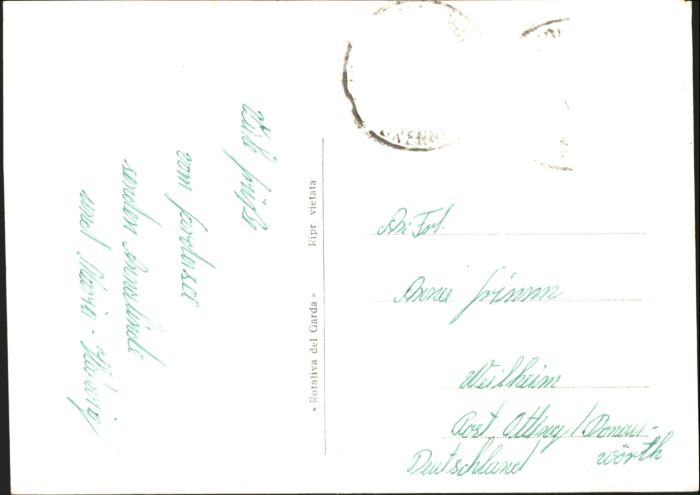 Viele Grüße
vom Gardasee
senden Annelindi
und Maria - Hedwig
« Rotativa del Garda »
Ripr. vietata
An Frl.
Anna Grimm
Weilheim
Post Otting / Donau-
wörth
Deutschland